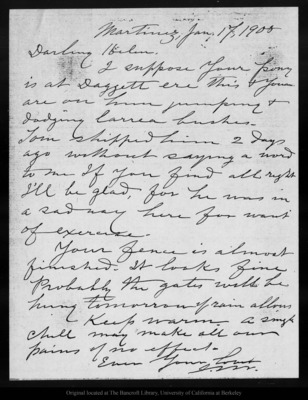 Martinez, Jan. 17, 1908
Darling Helen.
I suppose Your pony
is at Daggett ere this & You
are on him jumping &
dodging larrea bushes.
Tom shipped him 2 days
ago without saying a word
to me If You find all right
I'll be glad, for he was in
a sad way here for want
of exercise.
Your fence is almost
finished. It looks fine
Probably the gates will be
hung tomorrow if rain allows
Keep warm a single
chill may make all our
pains of no effect.
Ever Your
Original located at The Bancroft Library, University of California at Berkeley